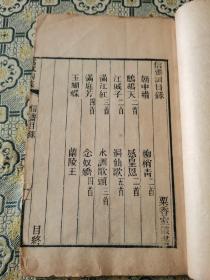 信齋詞目錄
朝中措
柳梢青二首
鷓鴣天二首
感皇恩二首
江城子二首
洞仙歌五首
滿江紅三首
水調歌頭二首
滿庭芳四首
念奴嬌四首
玉蝴蝶
蘭陵王
目終
粟香室叢書
信齋目錄